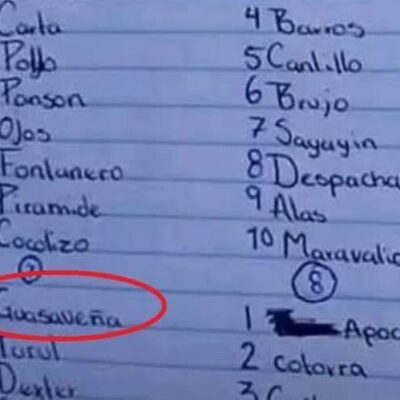 Carta
Pollo
Ponson
Ojos
Fontanero
Piramide
Cocolizo
7
Guasaveña
Turul
Dexter
4 Barros
5 Cantillo
6 Brujo
7 Sayayin
8 Despacha
9 Alas
10 Maravalio
8
1 Apoc
2 cotorra
3